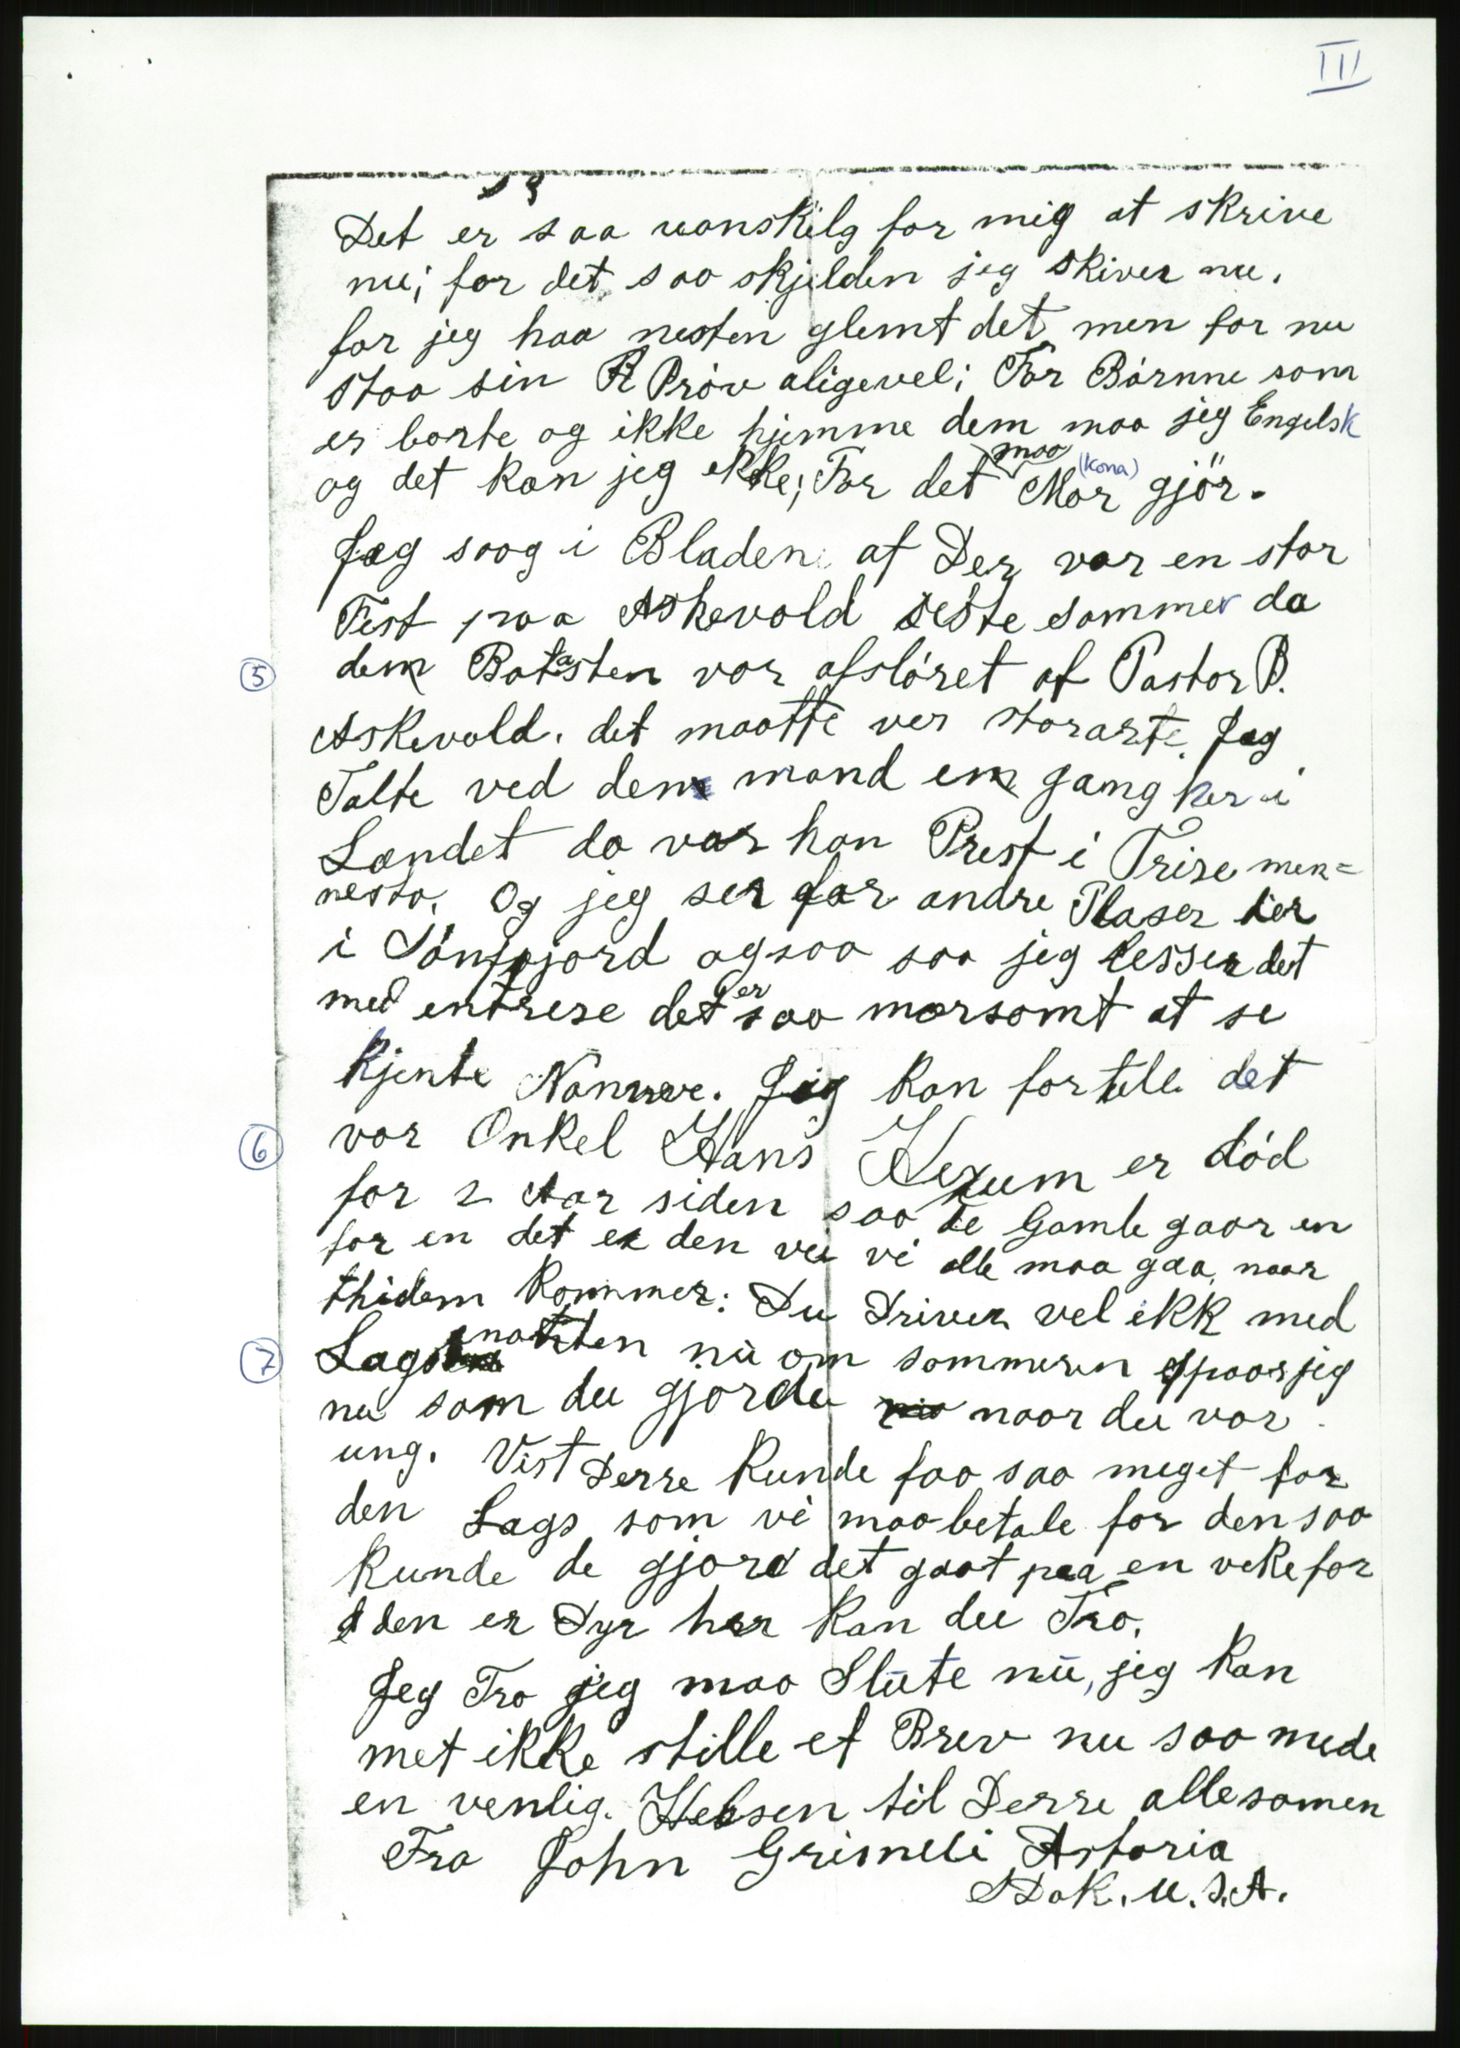 III
Det er saa vanskilg for mig at skrive
nu; for det saa skjelden jeg skiver nu.
for jeg haa nesten glemt det, men for nu
staa sin Pröv aligevel; For Börnne som
er borte og ikke hjemme dem maa jeg Engelsk
og det kan jeg ekke; For det maa Mor (Kona) gjör.
Jæg saag i Bladen at Der var en stor
Fest paa Askevold seste sommer da
5 dem Batasten var afslöret af Pastor B.
Askevold. det maatte ver storarte. Jeg
Talte ved dem mand em gamg her i
Landet da var han Prest i Trise men=
nesta. Og jeg ser far andre Plaser her
i Sönfjord agsaa saa jeg lesser det
med entrese det er saa morsomt at se
Kjente Namne. Jeg kan fortele det
6 vor Onkel Hans Hexum er död
for 2 Aar siden saa de Gamle gaar en
for en det er den vei vi alle maa gaa, naar
thidem kommer: Du Driver vel ikk med
7 Lagsnatten nu om sommeren spaar jeg
nu som du gjorde naar du var
ung. Vist Derre kunde faa saa meget for
den Lags som vi maa betale for den saa
kunde de gjord det gaat paa en veke for
den er Dyr her kan du Tro.
Jeg Tro jeg maa Slute nu, jeg kan
met ikke stille et Brev nu saa mede
en venlig. Helsen til Derre allesamen
Fra John Grimeli Astoria
S Dak. U.S.A.